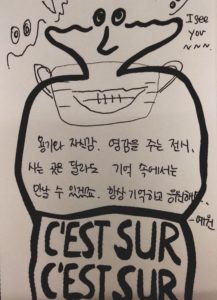 I see
you ~~~.
용기와 자신감, 영감을 주는 전시,
사는 곳은 달라도 기억 속에서는
만날 수 있겠죠. 항상 기억하고 응원해요..
-예원
C'EST SUR
C'EST SUR